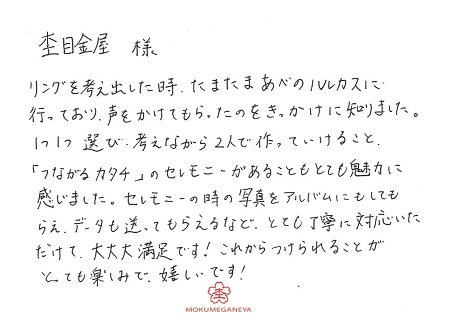 杢目金屋 様
リングを考え出した時、たまたまあべのハルカスに
行っており、声をかけてもらったのをきっかけに知りました。
1つ1つ選び、考えながら2人で作っていけること、
「つながるカタチ」のセレモニーがあることもとても魅力に
感じました。セレモニーの時の写真をアルバムにもしても
らえ、データも送ってもらえるなど、とても丁寧に対応いた
だけて、大大大満足です！これからつけられることが
とても楽しみで、嬉しいです！
杢
MOKUMEGANEYA